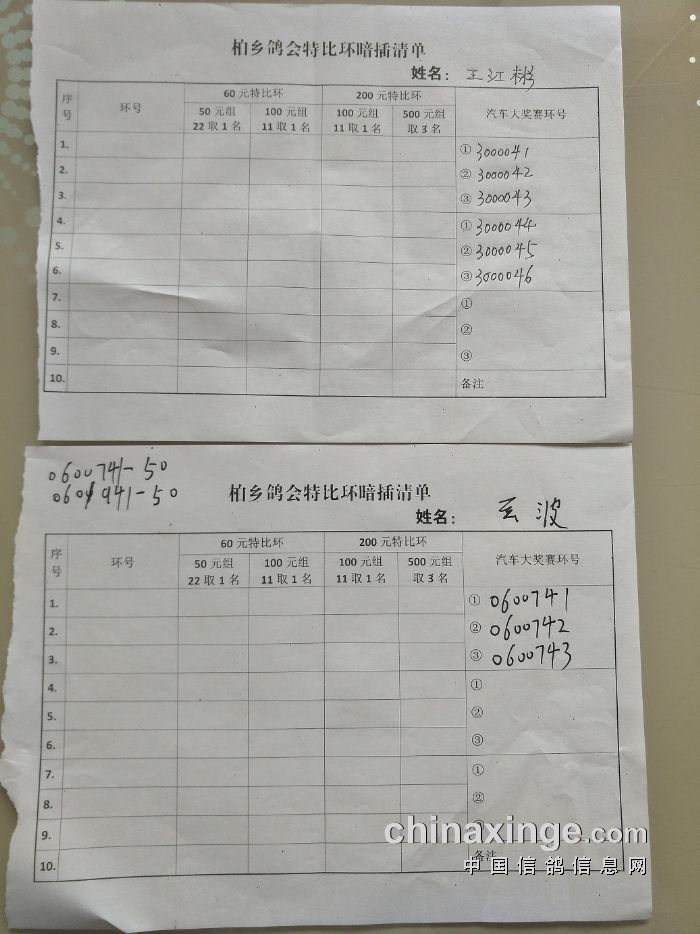 柏乡鸽会特比环暗插清单
姓名： 王江彬
序号 环号 60 元特比环 200 元特比环 汽车大奖赛环号
50 元组 22 取 1 名 100 元组 11 取 1 名 100 元组 11 取 1 名 500 元组 取 3 名
1. ① 3000041
2. ② 3000042
3. ③ 3000043
4. ① 3000044
5. ② 3000045
6. ③ 3000046
7. ①
8. ②
9. ③
10. 备注
0600741-50
0600941-50
柏乡鸽会特比环暗插清单
姓名： 云波
序号 环号 60 元特比环 200 元特比环 汽车大奖赛环号
50 元组 22 取 1 名 100 元组 11 取 1 名 100 元组 11 取 1 名 500 元组 取 3 名
1. ① 0600741
2. ② 0600742
3. ③ 0600743
4. ①
5. ②
6. ③
7. ①
8. ②
9. ③
10. 备注
chinaxinge.com
中国信鸽信息网